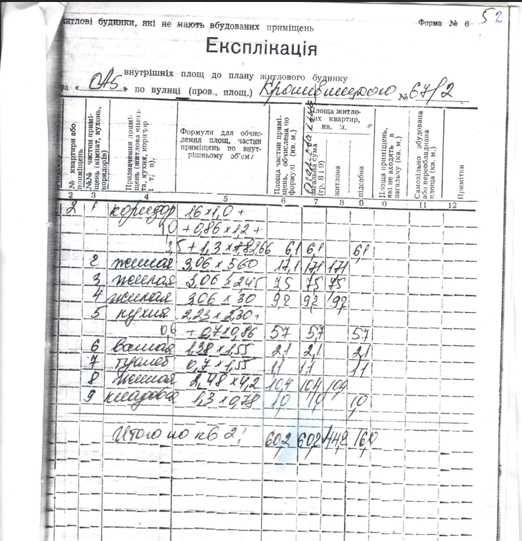 житлові будинки, які не мають вбудованих приміщень
Форма № 6
52
Експлікація
внутрішніх площ до плану житлового будинку
по вулиці (пров., площ.) № 67/2
№ квартири або приміщення
Формули для обчислення площі, частин приміщень по внутрішньому об'єму
Площа частин приміщень, обчислена по формулі (кв. м.)
Площа житлових квартир, кв. м.
житлова
підсобна
Площа приміщень, які не входять в загальну (кв. м.)
Самовільно збудована або переобладнана площа (кв. м.)
Примітки
2 3 4 5 6 7 8 9 10 11 12
2 1 коридор 1,6х1,0+
+0,86х1,2+
6,1 6,1 6,1
2 жилая 3,06х5,60 17,1 17,1 17,1
3 жилая 3,06х2,45 7,5 7,5 7,5
4 жилая 3,06х3,0 9,2 9,2 9,2
5 кухня 2,23х2,30+
+0,7х0,86 5,7 5,7 5,7
6 ванная 1,38х1,55 2,1 2,1 2,1
7 туалет 0,7х1,55 1,1 1,1 1,1
8 жилая 2,48х4,2 10,4 10,4 10,4
9 кладовая 1,3х0,78 1,0 1,0 1,0
Итого по кв 2: 60,2 60,2 44,2 16,0